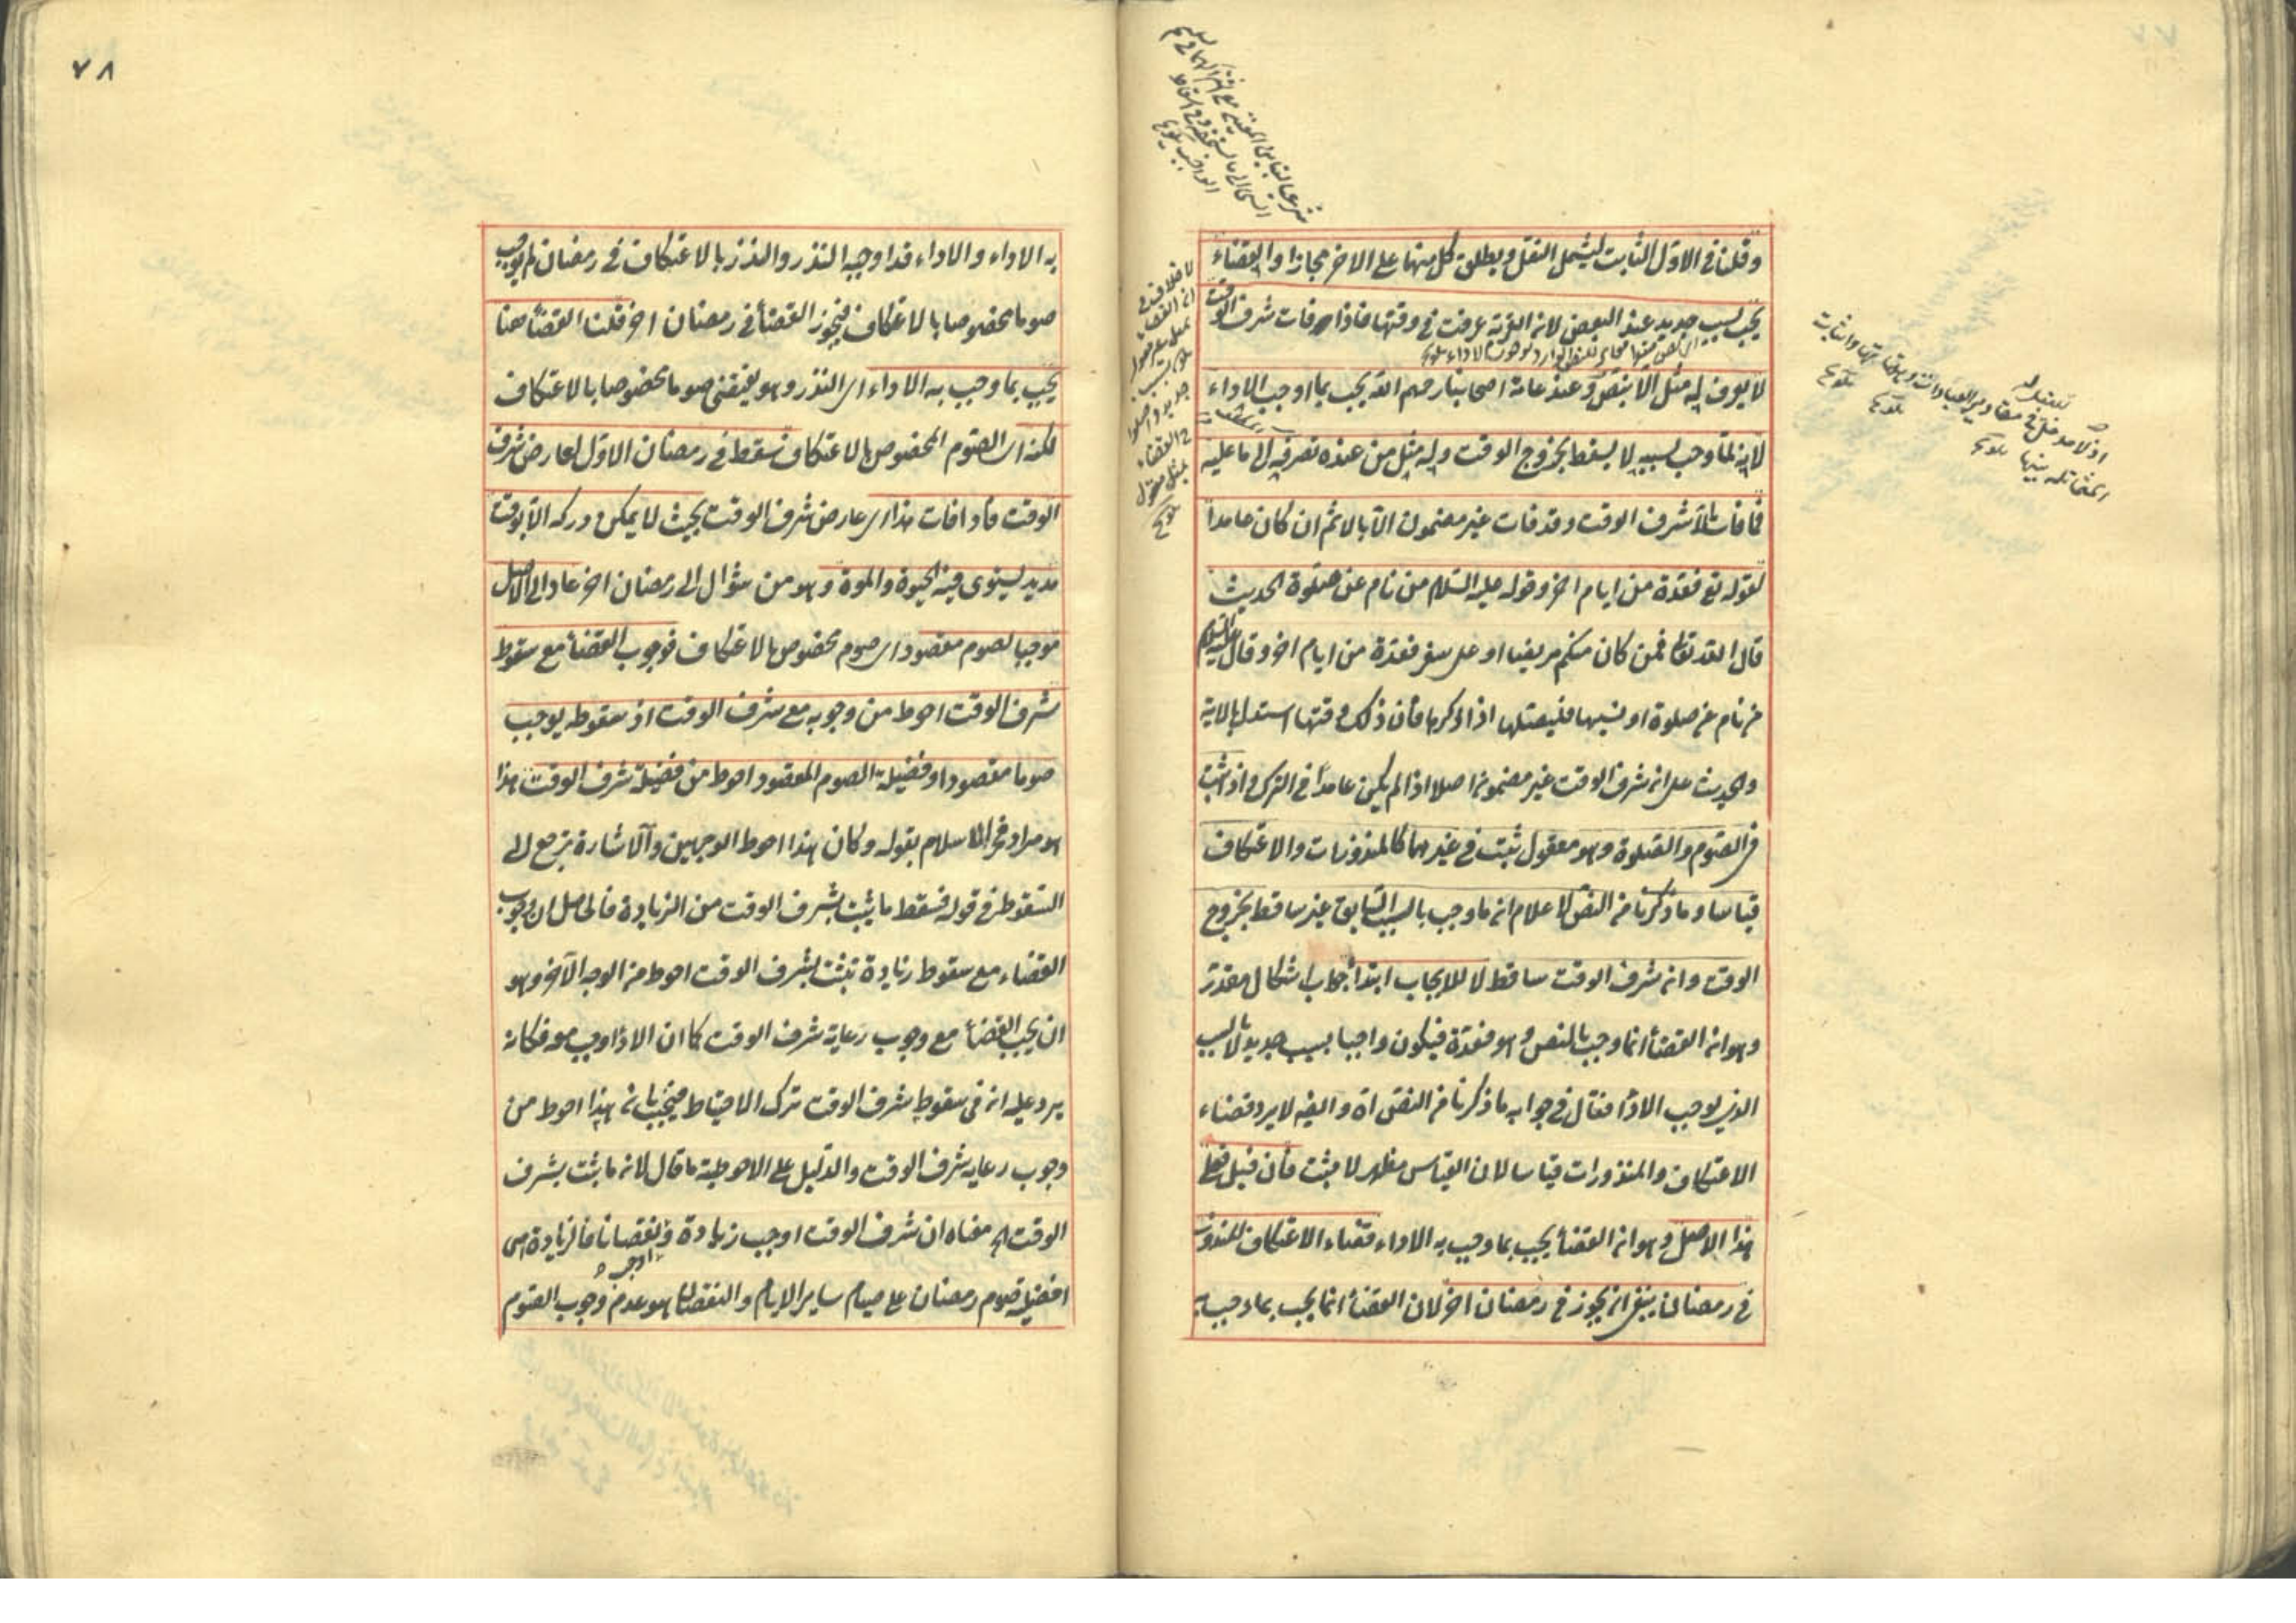 وقلنا فى الاول الثابت ليشمل النفل ويطلق كل منهما على الاخر مجازا والقضاء
يجب بسبب جديد عند البعض لانه القربة عرفت فى وقتها فاذا فات شرف الوقت
لا يعرف له مثل الا بنص وعند عامة اصحابنا رحمهم الله يجب بما اوجب الاداء
لانه لما وجب بسببه لا يسقط بخروج الوقت وله مثل من عنده تصرفه الى ما عليه
فما فات الا شرف الوقت وقد فات غير مضمون الا بالاثم ان كان عامدا
لقوله تع فعدة من ايام اخر وقوله عليه السلام من نام عن صلوة الحديث
قال الله تعالى فمن كان منكم مريضا او على سفر فعدة من ايام اخر وقال عليه السلام
من نام عن صلوة او نسيها فليصلها اذا ذكرها فان ذلك وقتها استدل بالاية
والحديث على ان شرف الوقت غير مضمون اصلا اذا لم يكن عامدا فى الترك واذ ثبت
فى الصوم والصلوة وهو معقول ثبت فى غيرهما كالمنذورات والاعتكاف
قياسا وما ذكرنا من النص لاعلام انه ما وجب بالسبب السابق غير ساقط بخروج
الوقت وانه شرف الوقت ساقط لا للايجاب ابتدأ جواب اشكال مقدر
وهو انه القضأ انما وجب بالنص وهو فعدة فيكون واجبا بسبب جديد لا بالسبب
الذى يوجب الادأ فقال فى جوابه ما ذكرنا من النص اه وايضا لا يرد قضاء
الاعتكاف والمنذورات قياسا لان القياس مظهر لا مثبت فان قيل فعلى
هذا الاصل وهو انه القضأ يجب بما وجب به الاداء قضاء الاعتكاف المنذور
فى رمضان ينبغى ان يجوز فى رمضان اخر لان القضأ انما يجب بما وجب
٧٨
به الاداء والاداء قد اوجبه النذر والنذر بالاعتكاف فى رمضان لم يوجب
صوما مخصوصا بالاعتكاف فيجوز القضأ فى رمضان اخر قلنا القضأ هنا
يجب بما وجب به الاداء اى النذر وهو يقتضى صوما مخصوصا بالاعتكاف
لكنه اى الصوم المخصوص بالاعتكاف سقط فى رمضان الاول لعارض شرف
الوقت فاذا فات هذا اى عارض شرف الوقت بحيث لا يمكن دركه الا بوقت
مديد يستوى فيه الحيوة والموة وهو من شوال الى رمضان اخر عاد الى الاصل
موجبا لصوم مقصود اى صوم مخصوص بالاعتكاف فوجوب القضأ مع سقوط
شرف الوقت احوط من وجوبه مع شرف الوقت اذ سقوطه يوجب
صوما مقصودا وفضيلة الصوم المقصود احوط من فضيلة شرف الوقت هذا
هو مراد فخر الاسلام بقوله وكان هذا احوط الوجهين والاشارة ترجع الى
السقوط فى قوله فسقط ما يثبت بشرف الوقت من الزيادة فالحاصل ان وجوب
القضاء مع سقوط زيادة تثبت بشرف الوقت احوط من الوجه الآخر وهو
ان يجب القضأ مع وجوب رعاية شرف الوقت كما ان الادأ وجب معه فكانه
يرد عليه انه فى سقوط شرف الوقت ترك الاحتياط فيجيب بان هذا احوط من
وجوب رعاية شرف الوقت والدليل على الاحوطية ما قال لانه ما ثبت بشرف
الوقت اه معناه ان شرف الوقت اوجب زيادة ونقصانا فالزيادة هى
افضلية صوم رمضان على صيام ساير الايام والنقصان هو عدم وجوب الصوم